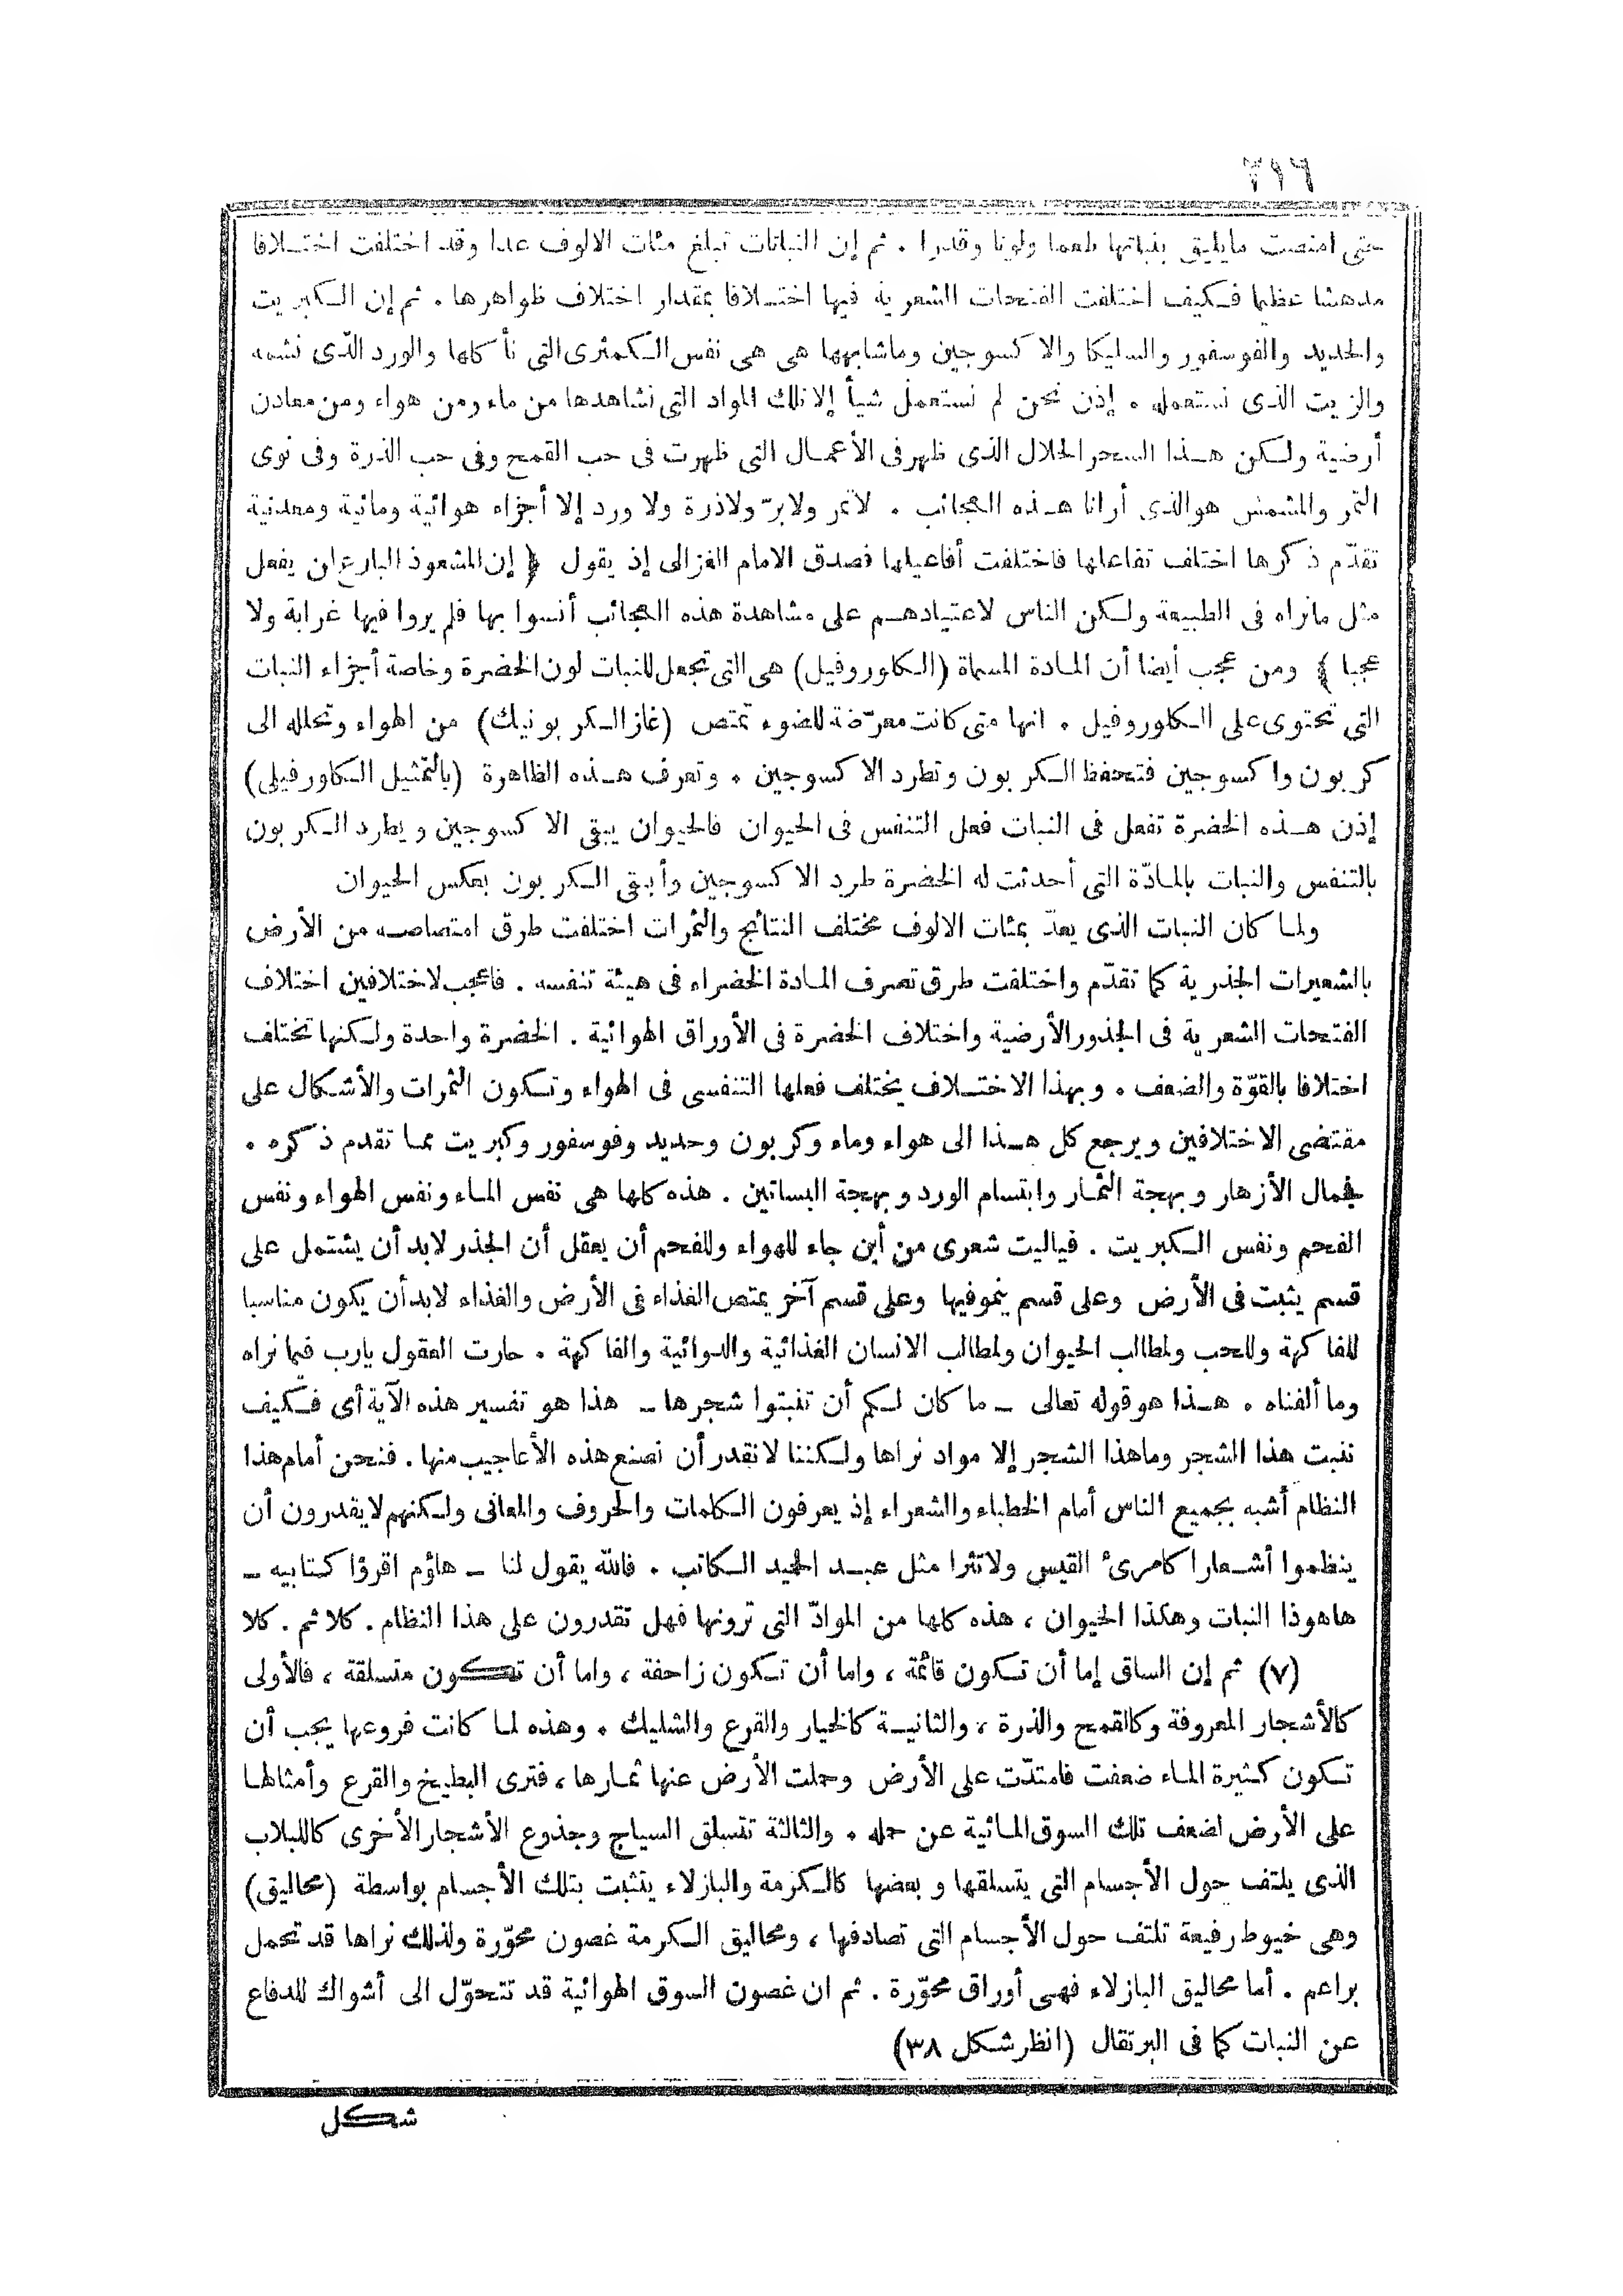 ٢١٦
حتى امتصت مايليق بنباتها طعما ولونا وقدرا . ثم إن النباتات تبلغ مئات الالوف عدا وقد اختلفت اختلافا
مدهشا عظيما فكيف اختلفت الفتحات الشعرية فيها اختلافا بمقدار اختلاف ظواهرها . ثم إن الكبريت
والحديد والفوسفور والسليكا والاكسوجين وماشابهها هى هى نفس الكمثرى التى نأكلها والورد الذى نشمه
والزيت الذى نستعمله . إذن نحن لم نستعمل شيأ إلا تلك المواد التى نشاهدها من ماء ومن هواء ومن معادن
أرضية ولكن هذا السحر الحلال الذى ظهر فى الأعمال التى ظهرت فى حب القمح وفى حب الذرة وفى نوى
التمر والمشمش هو الذى أرانا هذه العجائب . لاتمر ولابرّ ولاذرة ولا ورد إلا أجزاء هوائية ومائية ومعدنية
تقدّم ذكرها اختلف تفاعلها فاختلفت أفاعيلها فصدق الامام الغزالى إذ يقول ﴿ إن المشعوذ البارع لن يفعل
مثل مانراه فى الطبيعة ولكن الناس لاعتيادهم على مشاهدة هذه العجائب أنسوا بها فلم يروا فيها غرابة ولا
عجبا ﴾ ومن عجب أيضا أن المادة المسماة (الكلوروفيل) هى التى تجعل للنبات لون الخضرة وخاصة أجزاء النبات
التى تحتوى على الكلوروفيل . انها متى كانت معرّضة للضوء تمتص (غاز الكربونيك) من الهواء وتحلله الى
كربون واكسوجين فتحفظ الكربون وتطرد الاكسوجين . وتعرف هذه الظاهرة (بالتمثيل الكلورفيلى)
إذن هذه الخضرة تفعل فى النبات فعل التنفس فى الحيوان فالحيوان يبقى الاكسوجين ويطرد الكربون
بالتنفس والنبات بالمادّة التى أحدثت له الخضرة طرد الاكسوجين وأبقى الكربون بعكس الحيوان
ولما كان النبات الذى يعدّ بمئات الالوف مختلف النتائج والثمرات اختلفت طرق امتصاصه من الأرض
بالشعيرات الجذرية كما تقدّم واختلفت طرق تصرف المادة الخضراء فى هيئة تنفسه . فاعجب لاختلافين اختلاف
الفتحات الشعرية فى الجذور الأرضية واختلاف الخضرة فى الأوراق الهوائية . الخضرة واحدة ولكنها تختلف
اختلافا بالقوّة والضعف . وبهذا الاختلاف يختلف فعلها التنفسى فى الهواء وتكون الثمرات والأشكال على
مقتضى الاختلافين ويرجع كل هذا الى هواء وماء وكربون وحديد وفوسفور وكبريت مما تقدم ذكره .
فجمال الأزهار وبهجة الثمار وابتسام الورد وبهجة البساتين . هذه كلها هى نفس الماء ونفس الهواء ونفس
الفحم ونفس الكبريت . فياليت شعرى من أين جاء للهواء وللفحم أن يعقل أن الجذر لابد أن يشتمل على
قسم يثبت فى الأرض وعلى قسم ينمو فيها وعلى قسم آخر يمتص الغذاء فى الأرض والغذاء لابد أن يكون مناسبا
للفاكهة وللحب ولمطالب الحيوان ولمطالب الانسان الغذائية والدوائية والفاكهة . حارت العقول يارب فيما نراه
وما ألفناه . هذا هو قوله تعالى ــ ما كان لكم أن تنبتوا شجرها ــ هذا هو تفسير هذه الآية أى فكيف
ننبت هذا الشجر وماهذا الشجر إلا مواد نراها ولكننا لانقدر أن نصنع هذه الأعاجيب منها . فنحن أمام هذا
النظام أشبه بجميع الناس أمام الخطباء والشعراء إذ يعرفون الكلمات والحروف والمعانى ولكنهم لايقدرون أن
ينظموا أشعارا كامرئ القيس ولانثرا مثل عبد الحميد الكاتب . فالله يقول لنا ــ هاؤم اقرؤا كتابيه ــ
هاهوذا النبات وهكذا الحيوان ، هذه كلها من الموادّ التى ترونها فهل تقدرون على هذا النظام . كلا ثم . كلا
(٧) ثم إن الساق إما أن تكون قائمة ، واما أن تكون زاحفة ، واما أن تكون متسلقة ، فالأولى
كالأشجار المعروفة وكالقمح والذرة ، والثانية كالخيار والقرع والشليك . وهذه لما كانت فروعها يجب أن
تكون كثيرة الماء ضعفت فامتدّت على الأرض وحملت الأرض عنها ثمارها ، فترى البطيخ والقرع وأمثالها
على الأرض لضعف تلك السوق المائية عن حمله . والثالثة تتسلق السياج وجذوع الأشجار الأخرى كاللبلاب
الذى يلتف حول الأجسام التى يتسلقها وبعضها كالكرمة والبازلاء يتثبت بتلك الأجسام بواسطة (محاليق)
وهى خيوط رفيعة تلتف حول الأجسام التى تصادفها ، ومحاليق الكرمة غصون محوّرة ولذلك نراها قد تحمل
براعم . أما محاليق البازلاء فهى أوراق محوّرة . ثم ان غصون السوق الهوائية قد تتحوّل الى أشواك للدفاع
عن النبات كما فى البرتقال (انظر شكل ٣٨)
شكل